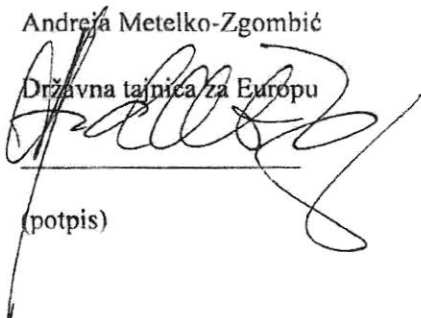 Andreja Metelko-Zgombić
Državna tajnica za Europu
(potpis)